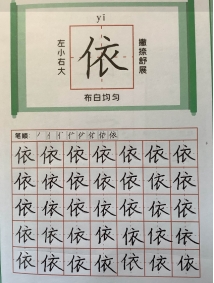 yī
左小右大
依
撇捺舒展
布白均匀
笔顺 丿 亻 亻 亻 亻 依 依 依
依 依 依 依 依 依 依
依 依 依 依 依 依 依
依 依 依 依 依 依 依
依 依 依 依 依 依 依
依 依 依 依 依 依 依